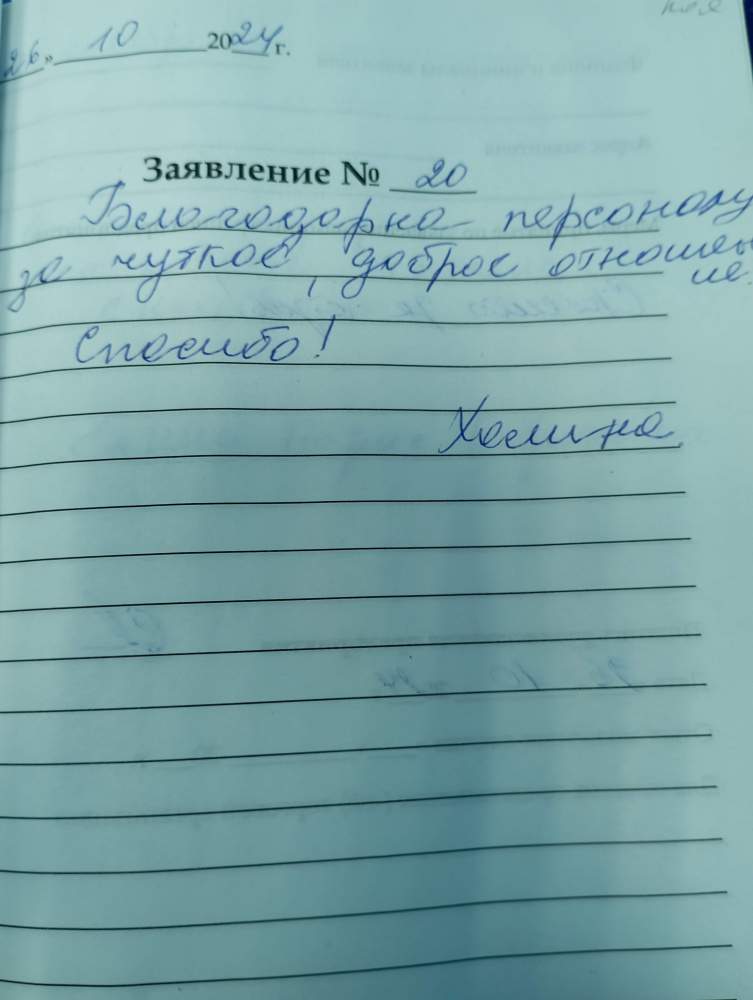 26» 10 2024 г.
Заявление № 20
Благодарна персоналу
за чуткое, доброе отношен
ие.
Спасибо!
Халина